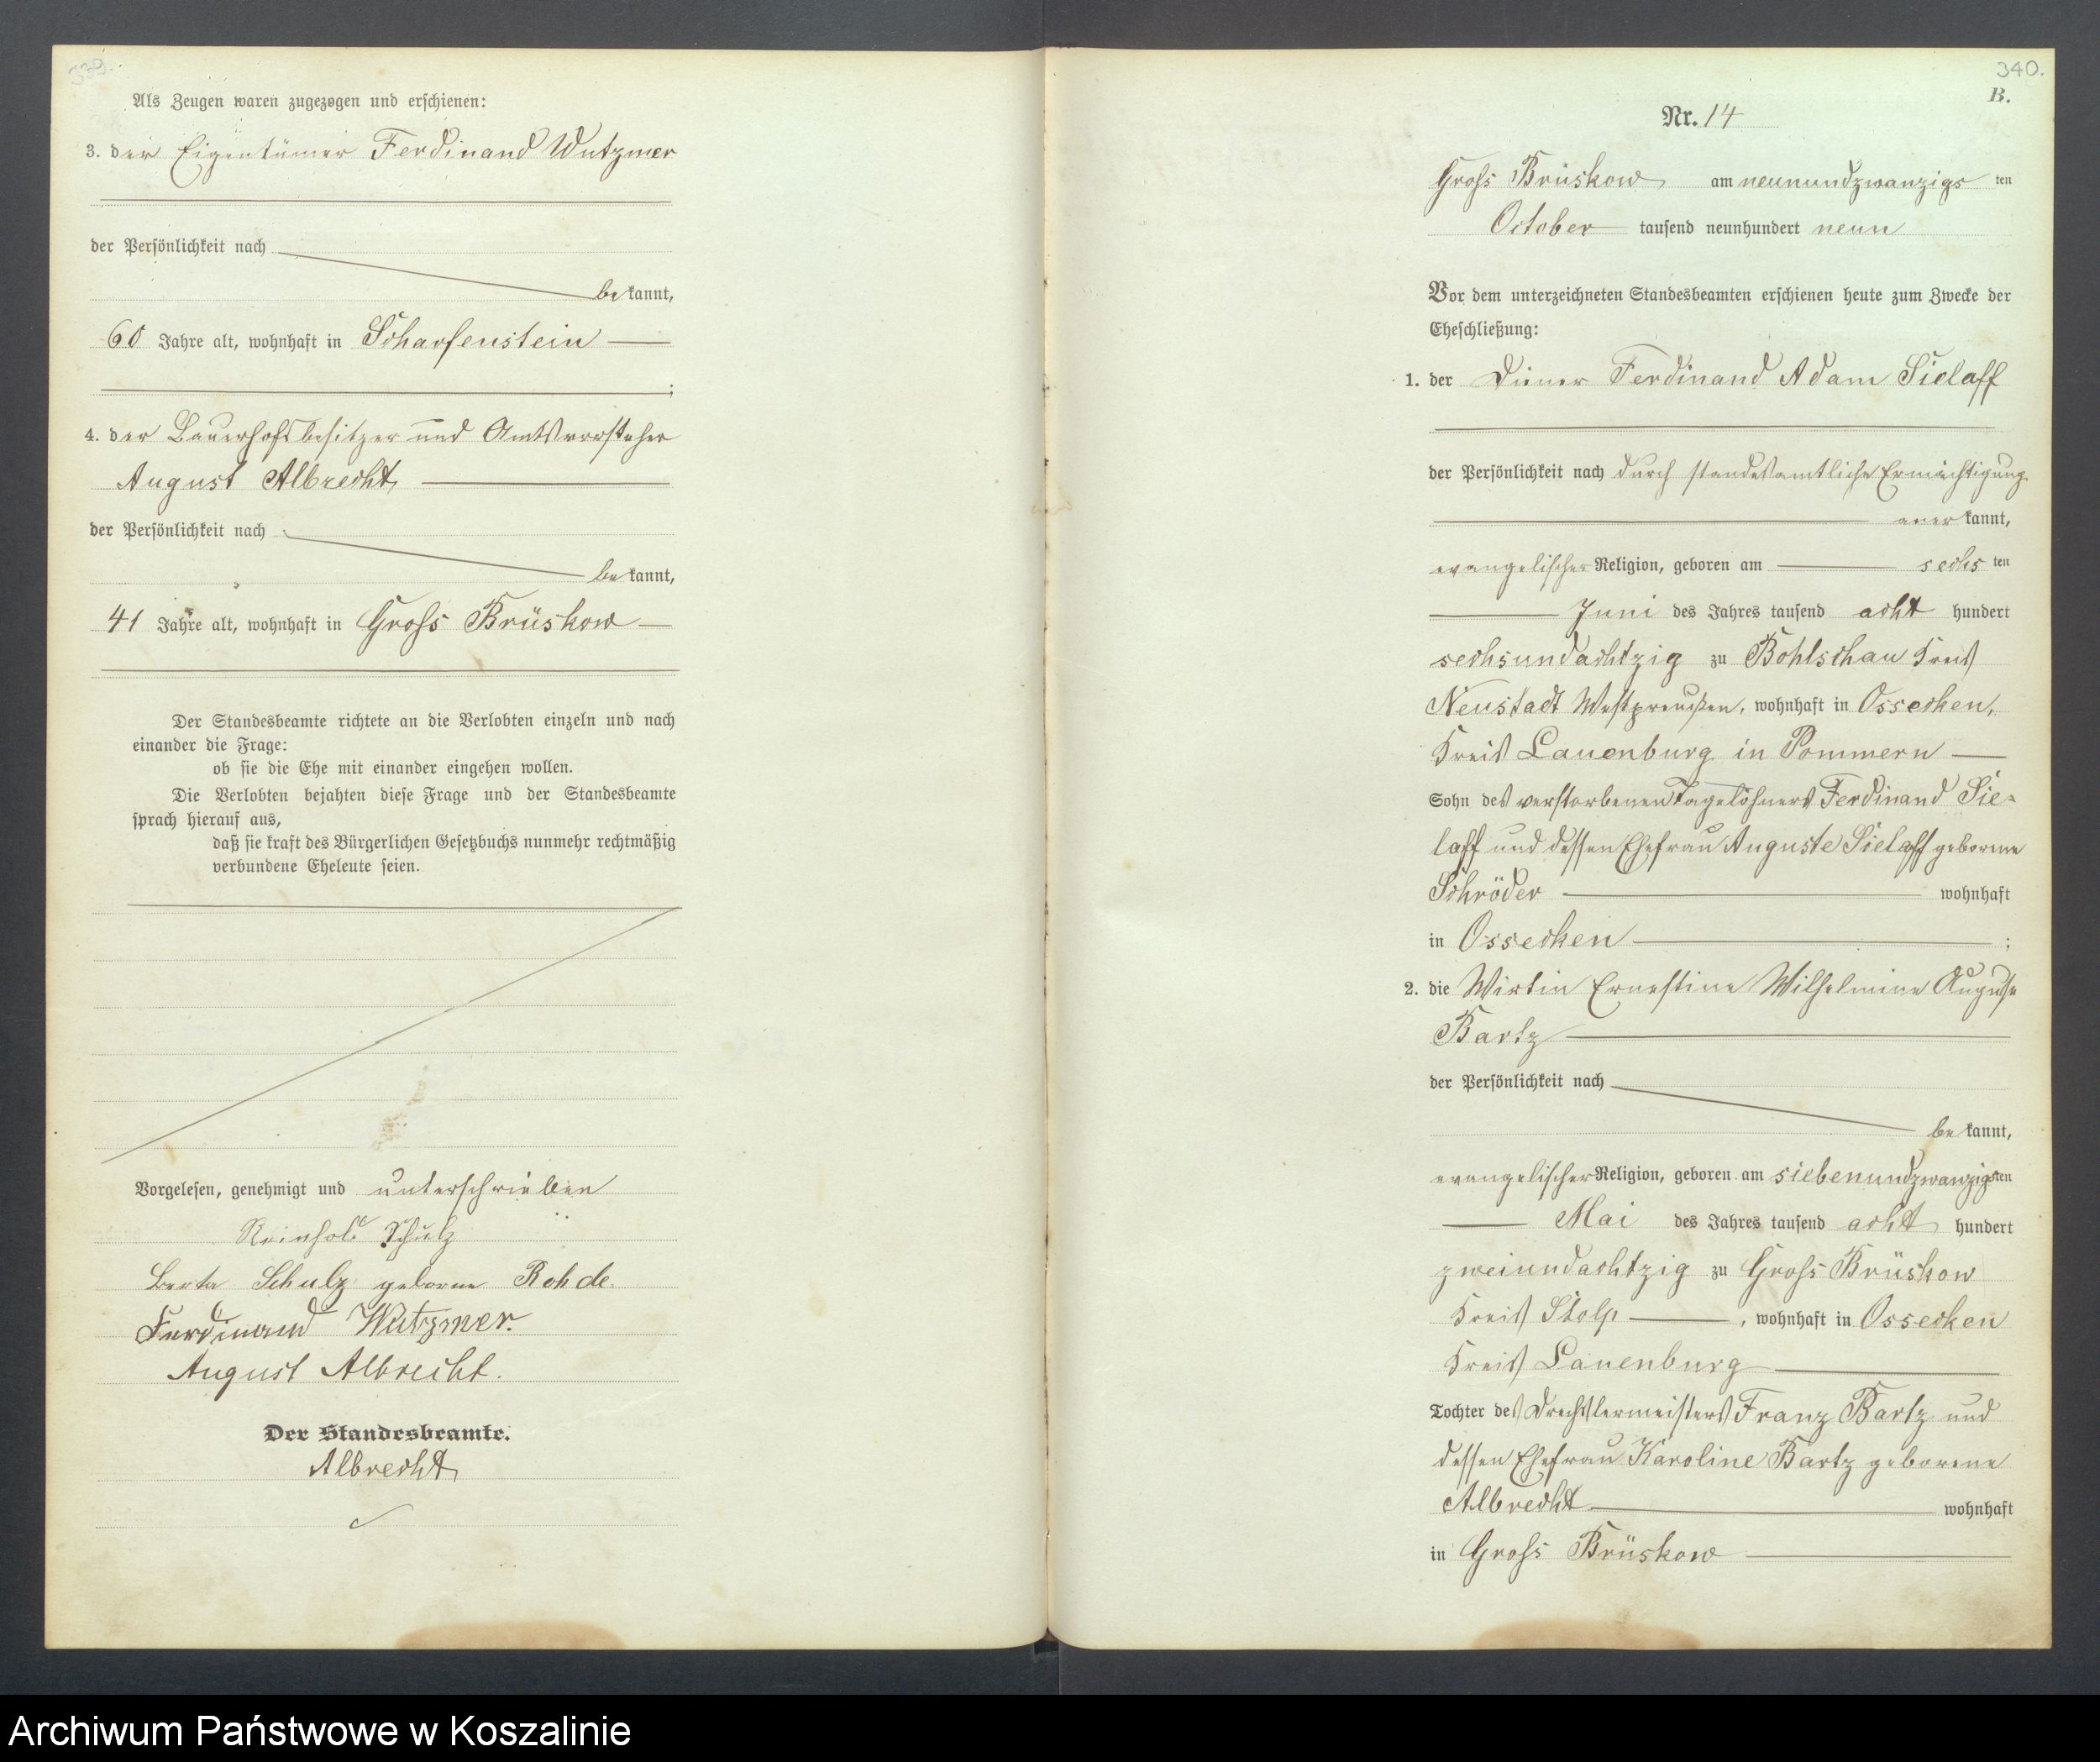 339.
Als Zeugen waren zugezogen und erschienen:
3. der Eigentümer Ferdinand Wutzmer
der Persönlichkeit nach
bekannt,
60 Jahre alt, wohnhaft in Scharfenstein
;
4. der Bauerhofsbesitzer und Amtsvorsteher
August Albrecht,
der Persönlichkeit nach
bekannt,
41 Jahre alt, wohnhaft in Groß Brüskow
Der Standesbeamte richtete an die Verlobten einzeln und nach
einander die Frage:
ob sie die Ehe mit einander eingehen wollen.
Die Verlobten bejahten diese Frage und der Standesbeamte
sprach hierauf aus,
daß sie kraft des Bürgerlichen Gesetzbuchs nunmehr rechtmäßig
verbundene Eheleute seien.
Vorgelesen, genehmigt und unterschrieben
Reinhold Schulz
Berta Schulz geborne Rohde.
Ferdinand Wutzmer.
August Albrecht.
Der Standesbeamte.
Albrecht
340.
B.
Nr. 14
Groß Brüskow am neunundzwanzigsten
October tausend neunhundert neun
Vor dem unterzeichneten Standesbeamten erschienen heute zum Zwecke der
Eheschließung:
1. der Diener Ferdinand Adam Sielaff
der Persönlichkeit nach durch standesamtliche Ermächtigung
anerkannt,
evangelischer Religion, geboren am sechsten
Juni des Jahres tausend acht hundert
sechsundachtzig zu Bohlschau Kreis
Neustadt Westpreußen, wohnhaft in Ossecken,
Kreis Lauenburg in Pommern
Sohn des verstorbenen Tagelöhners Ferdinand Sie-
laff und dessen Ehefrau Auguste Sielaff geborene
Schröder wohnhaft
in Ossecken ;
2. die Wirtin Ernestine Wilhelmine Auguste
Bartz
der Persönlichkeit nach
bekannt,
evangelischer Religion, geboren am siebenundzwanzigsten
Mai des Jahres tausend acht hundert
zweiundachtzig zu Groß Brüskow
Kreis Stolp, wohnhaft in Ossecken
Kreis Lauenburg
Tochter des Drechslermeisters Franz Bartz und
dessen Ehefrau Karoline Bartz geborene
Albrecht wohnhaft
in Groß Brüskow
Archiwum Państwowe w Koszalinie